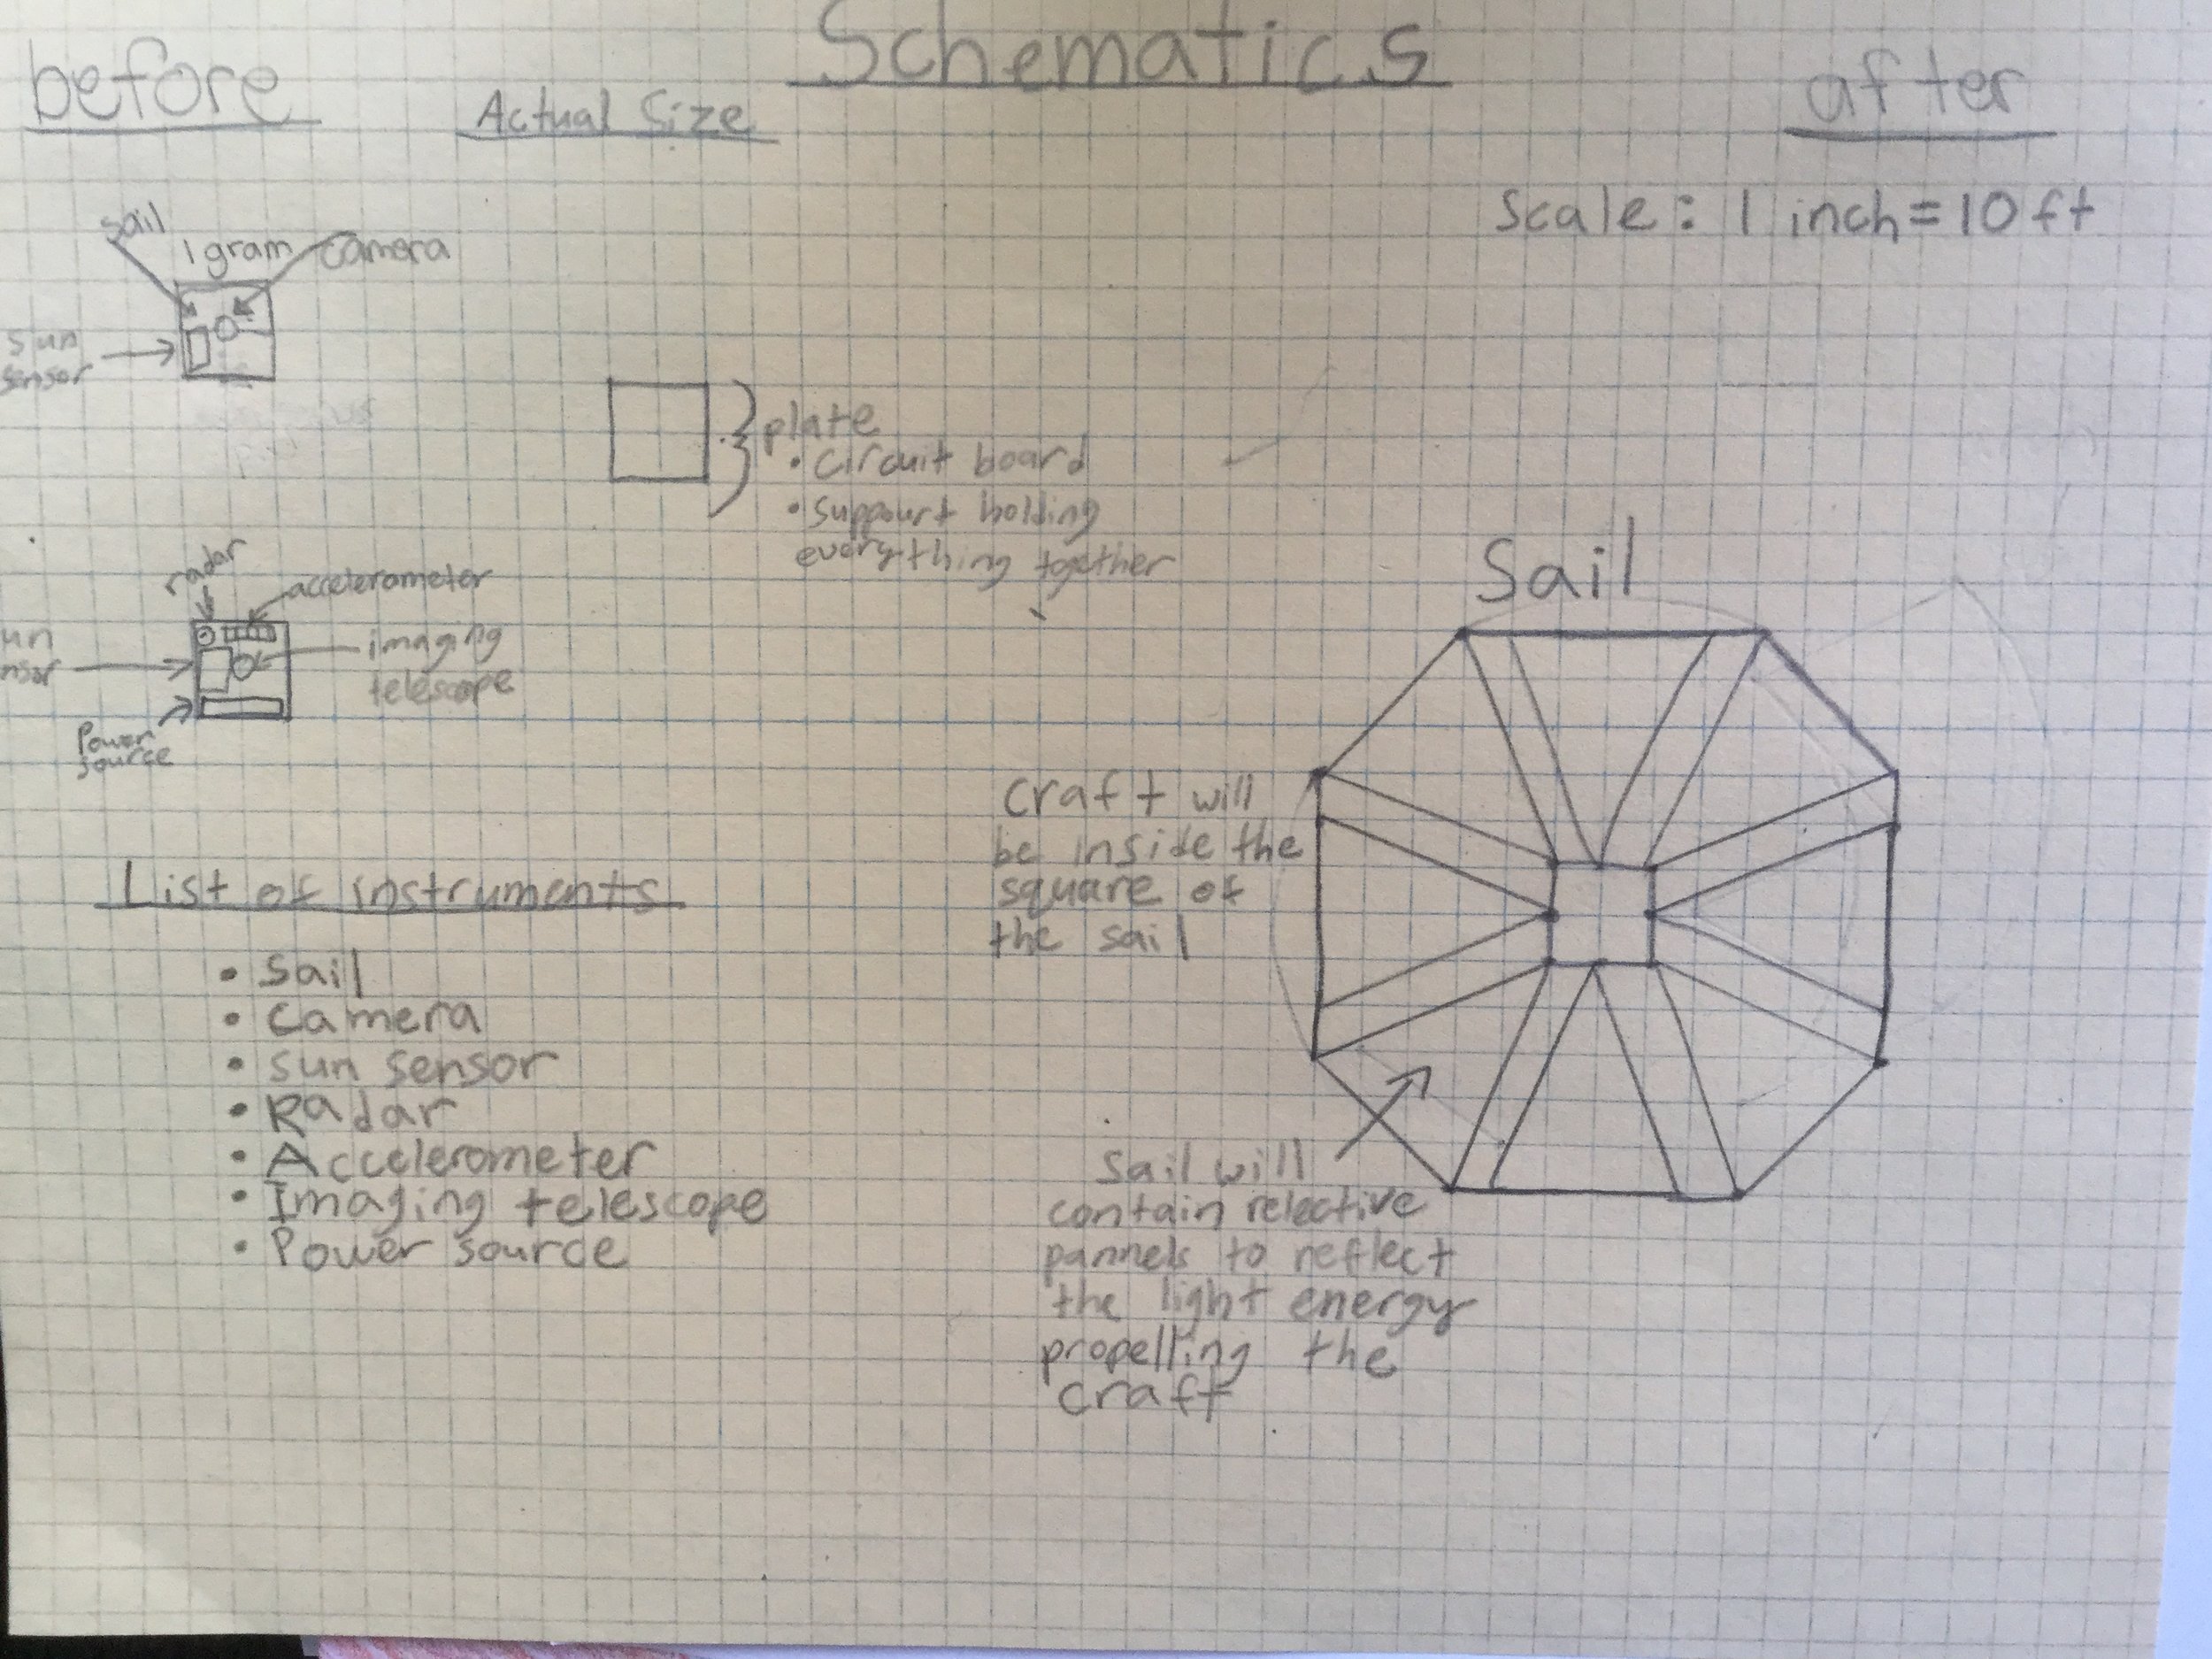 Schematics
before
Actual Size
after
Scale: 1 inch = 10 ft
sail
1 gram
camera
sun
sensor
plate
• circuit board
• suppourt holding
everything together
radar
accelerometer
un
nsor
imaging
telescope
Power
source
Sail
craft will
be inside the
square of
the sail
List of instruments
• Sail
• camera
• sun sensor
• Radar
• Accelerometer
• Imaging telescope
• Power source
Sail will
contain relective
pannels to reflect
the light energy
propelling the
craft